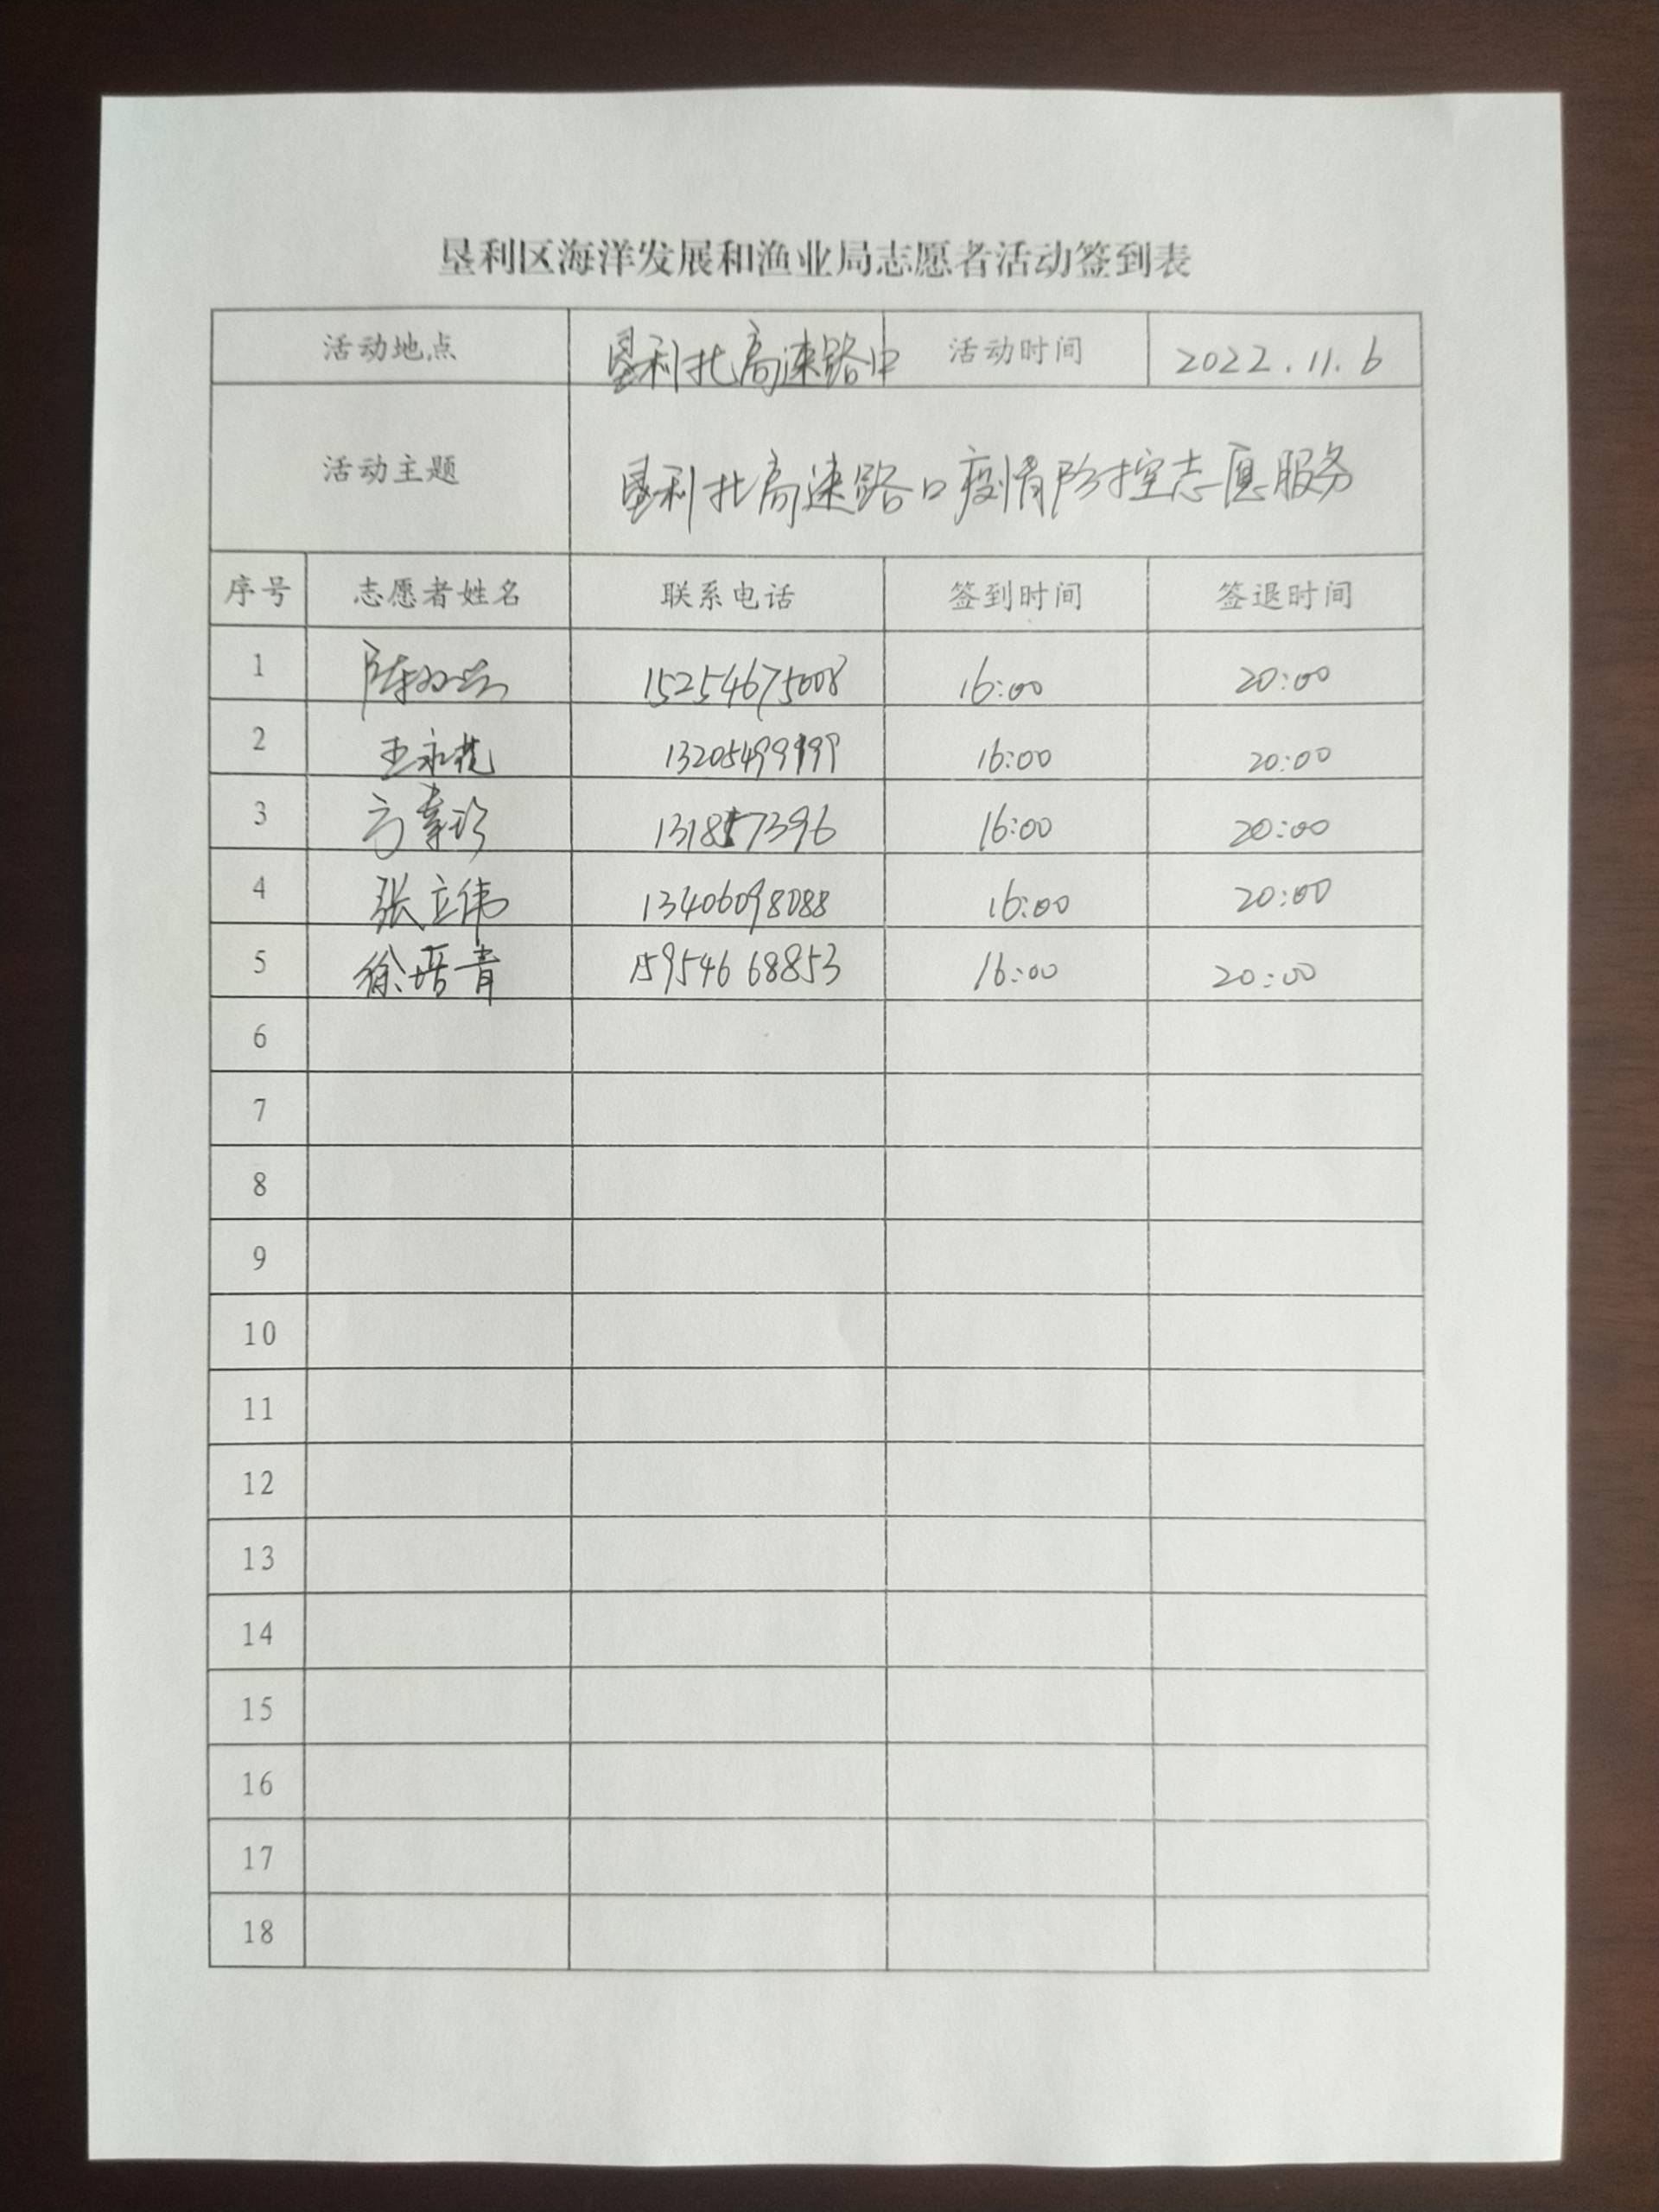 垦利区海洋发展和渔业局志愿者活动签到表
活动地点 垦利北高速路口 活动时间 2022.11.6
活动主题 垦利北高速路口疫情防控志愿服务
序号 志愿者姓名 联系电话 签到时间 签退时间
1 陈 15254675008 16:00 20:00
2 王永 13205499999 16:00 20:00
3 131857396 16:00 20:00
4 张立伟 13406098088 16:00 20:00
5 徐培青 15954668853 16:00 20:00
6
7
8
9
10
11
12
13
14
15
16
17
18